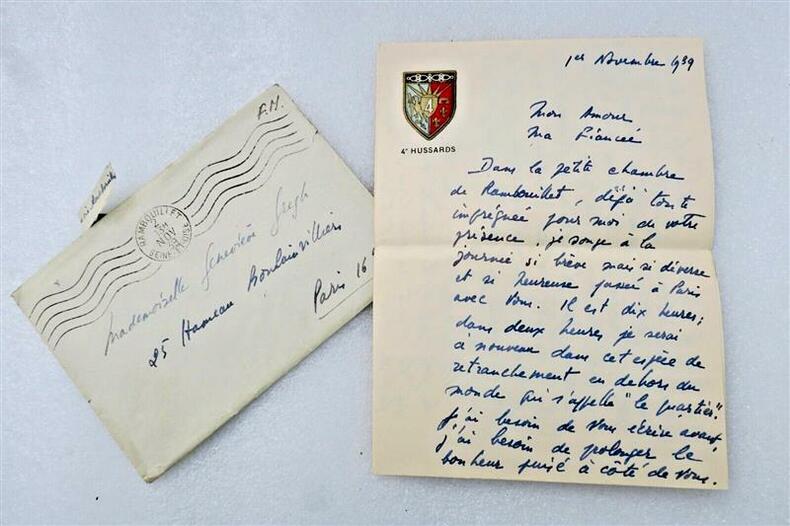 F.M.
RAMBOUILLET
NOV
SEINE
Mademoiselle Geneviève Gregh
25 Hameau Boulainvilliers
Paris 16
1er Novembre 1939
4
4e HUSSARDS
Mon Amour
Ma Fiancée
Dans la petite chambre
de Rambouillet, déjà toute
imprégnée pour moi de votre
présence, je songe à la
journée si brève mais si diverse
et si heureuse passée à Paris
avec vous. Il est dix heures;
dans deux heures je serai
à nouveau dans cet espèce de
retranchement en dehors du
monde qui s'appelle "le quartier".
J'ai besoin de vous écrire avant,
j'ai besoin de prolonger le
bonheur puisé à côté de vous.